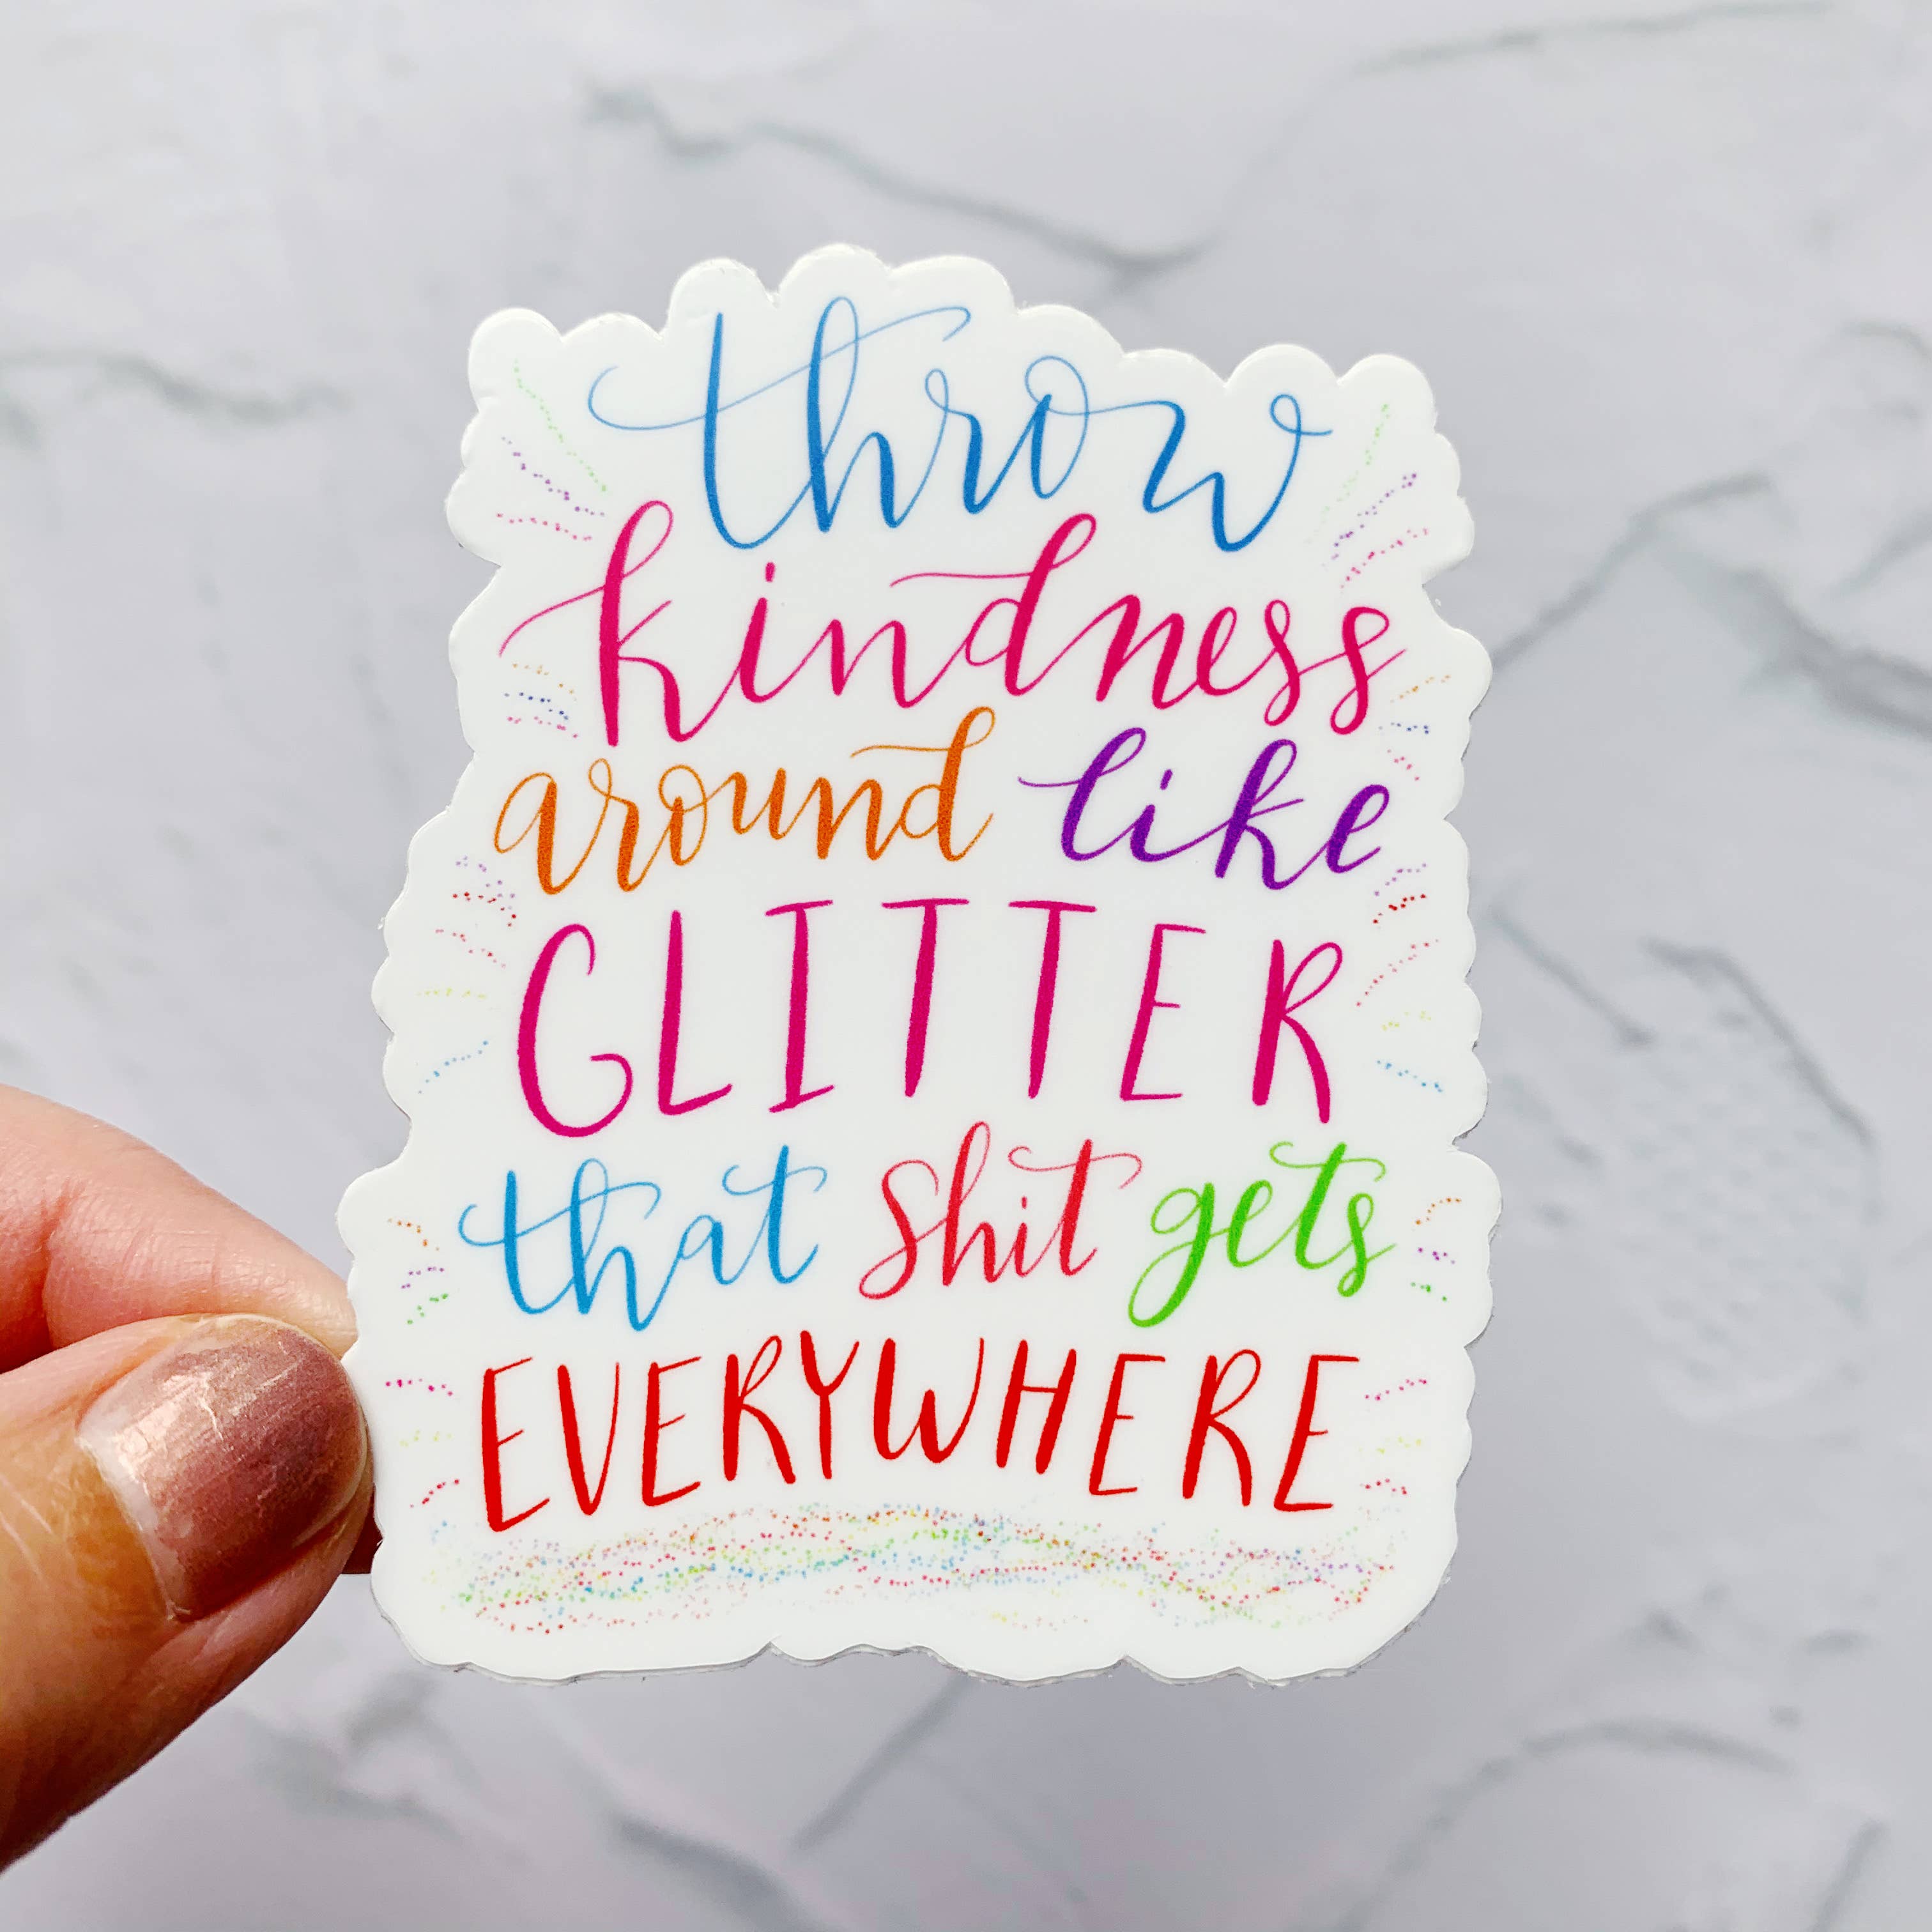 throw
kindness
around like
GLITTER
that shit gets
EVERYWHERE